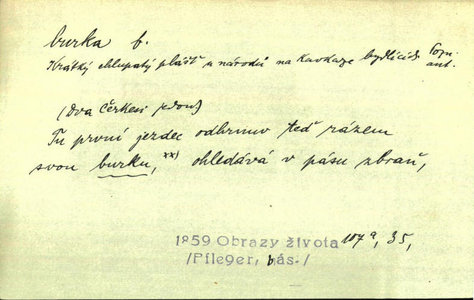 burka f.
Krátký chlupatý plášť u národů na Kavkaze bydlících. Pozn. aut.
(Dva Čerkesi jedou)
Tu první jezdec odhrnuv teď rázem
svou burku, xx) ohledává v pásu zbraň,
1859 Obrazy života 107a, 35,
/Pfleger, bás./